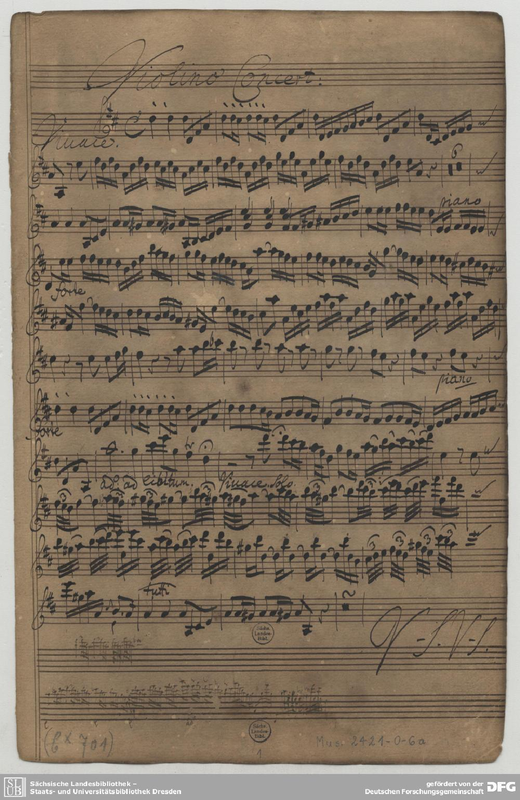 Violino Concert:
Vivace.
6
piano
forte
piano
forte
ad libitum. Vivace. Solo
3 3 3
3 3 3 3
tutti
2
V-S. V-S.
Sächs. Landes Bibl.
Sächs. Landes Bibl.
1
Mus. 2421-O-6a
Sächsische Landesbibliothek –
Staats- und Universitätsbibliothek Dresden
gefördert von der
Deutschen Forschungsgemeinschaft
DFG